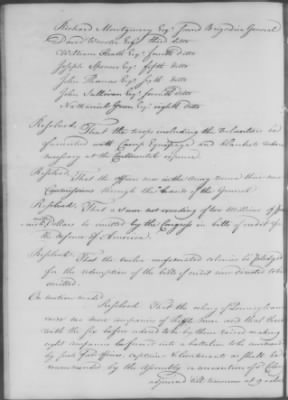 Richard Montgomery Esqr. second Brigadier General
David Wooster Esqr. third ditto
William Heath Esqr. fourth ditto
Joseph Spencer Esqr. fifth ditto
John Thomas Esqr. sixth ditto
John Sullivan Esqr. seventh ditto
Nathaniel Green Esqr. eighth ditto
Resolved, That the troops including the Volunteers be
furnished with Camp Equipage and blankets where
necessary at the Continental expence
Resolved, That the officers now in the army receive their new
Commissions through the hands of the General
Resolved, That a sum not exceeding two Millions of Spa
nish Dollars be emitted by the Congress in bills of credit for
the defence of America.
Resolved, That the twelve confederated colonies be pledged
for the redemption of the bills of credit now directed to be
emitted.
On motion made
Resolved That the colony of Pennsylvania
raise two more companies of Riffle men and that these
with the six before ordered to be by them raised making
eight companies be formed into a battalion to be commanded
by such field officers, captains & lieutenants as shall be
recommended by the Assembly or convention of sd Colony
adjourned till tomorrow at 9 oClock